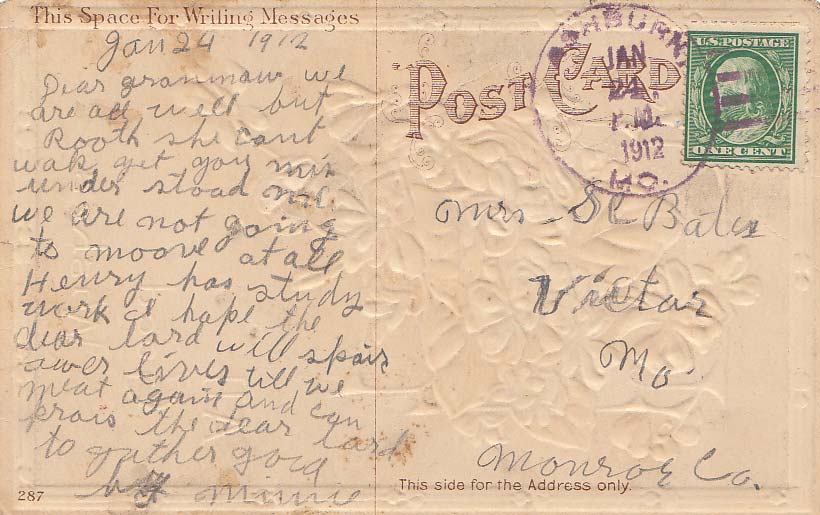 This Space For Writing Messages
Jan 24 1912
Dear granmaw we
are all well but
Rooth she cant
wak yet you mis
under stoad me.
we are not going
to moove at all
Henry has study
work I hope the
dear lard will spair
awer lives till we
meat again and can
prais the dear lard
to gather good
by Minnie
287
POST CARD
ASHBURN
JAN
24
P.M.
1912
MO.
U.S. POSTAGE
ONE CENT
Mrs Bates
Victar
Mo
Monroe Co.
This side for the Address only.